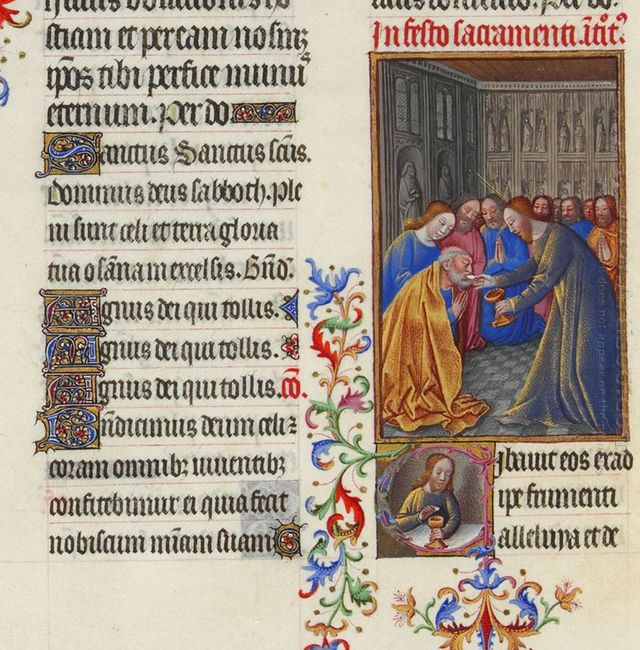 stiam et per eam nosmꝫ
ip̄os tibi perfice munu᷒
eternum. Per do
Sanctus Sanctus sc̄us.
Dominus deus sabboth. ple
ni sunt celi et terra gloria
tua osāna in excelsis. Bn̄d̄.
Agnus dei qui tollis.
Agnus dei qui tollis.
Agnus dei qui tollis. cō.
Bn̄dicimus deum celi ⁊
coram omnibꝫ viventibꝫ
confitebimur ei quia fecit
nobiscum mīam suam
In festo sacramenti.
Cibavit eos ex ad
ipe frumenti
alleluya et de